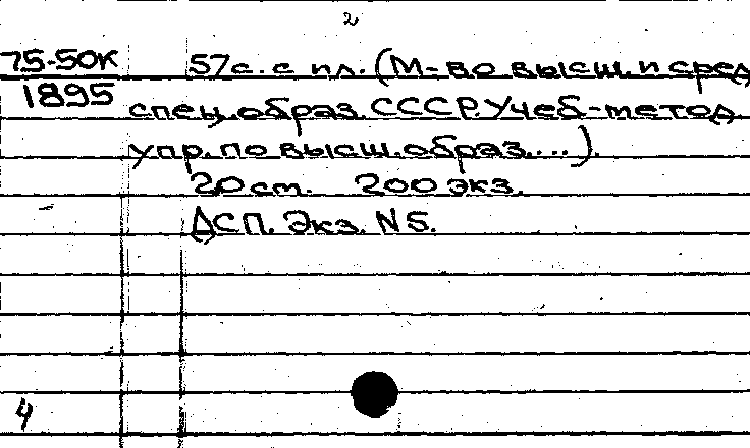 2
75-50К 57с. с ил. (М-во высш. и сред.
1895 спец. образ. СССР. Учеб-метод.
упр. по высш. образ. ...).
20 см. 200 экз.
ДСП. Экз. N 5.
4